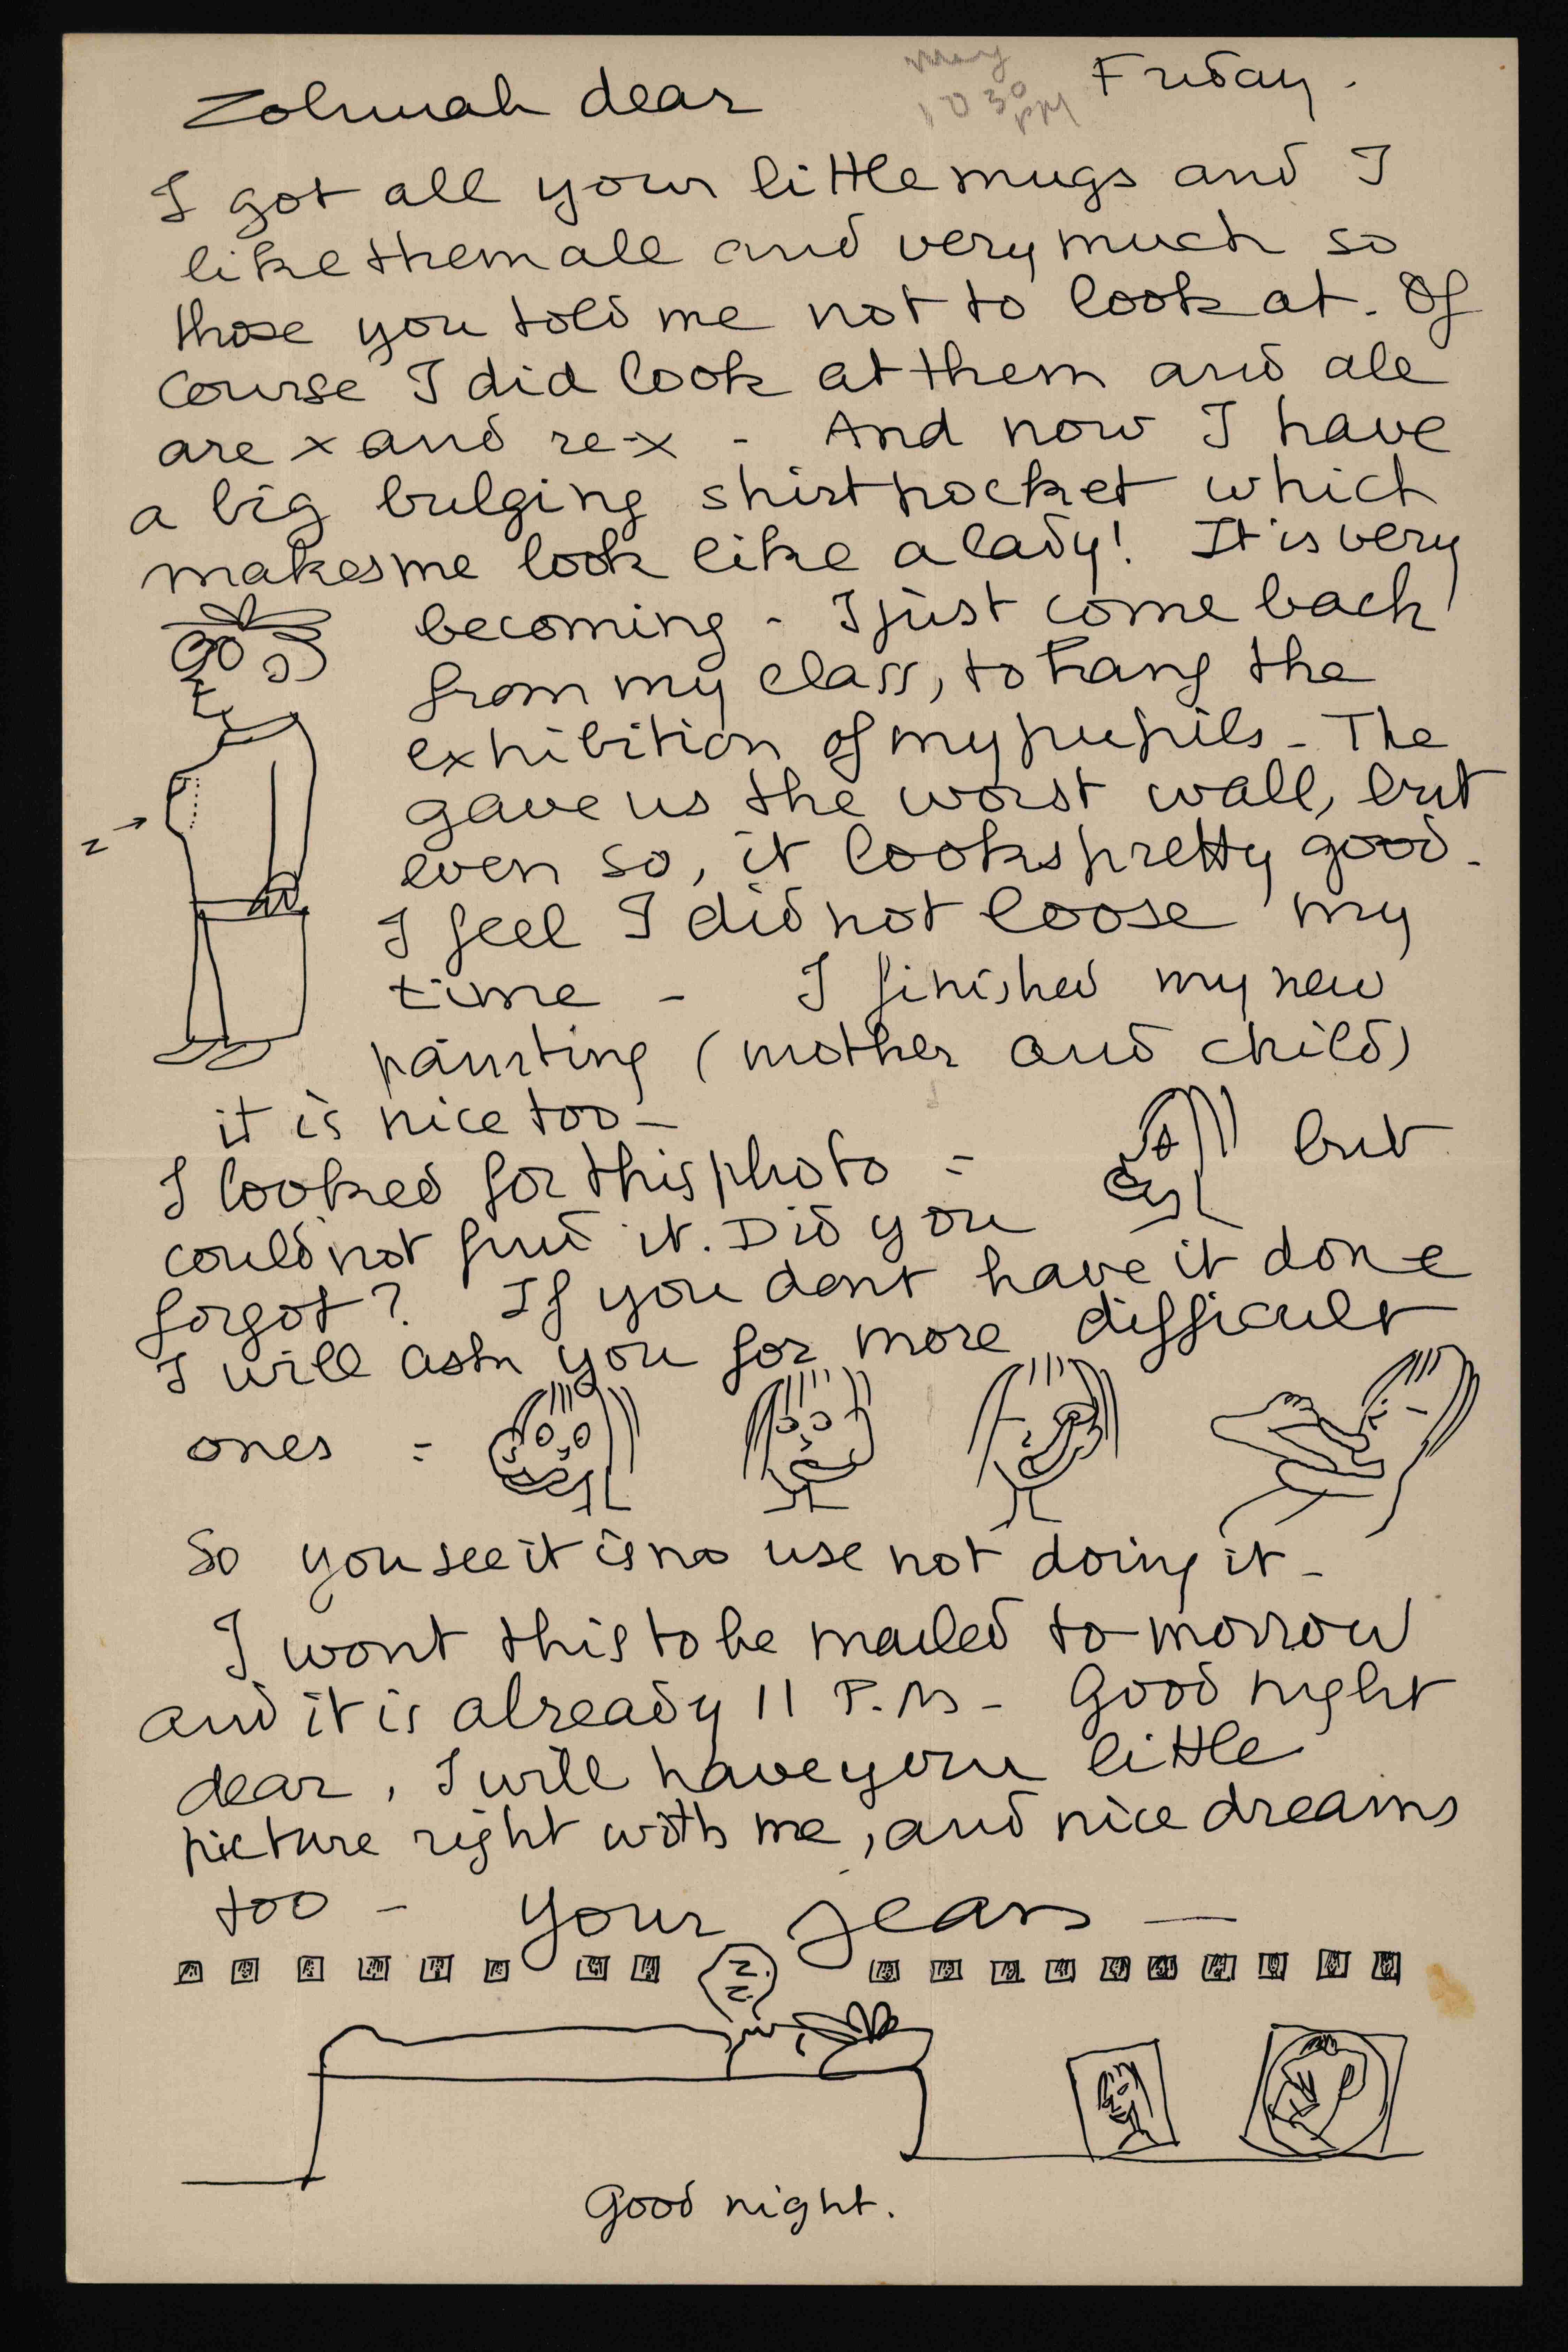 Zohmah dear
May
10 30
PM
Friday.
I got all your little mugs and I
like them all and very much so
those you told me not to look at. Of
course I did look at them and all
are x and re-x - And now I have
a big bulging shirt pocket which
makes me look like a lady! It is very
becoming - I just come back
from my class, to hang the
exhibition of my pupils - The
gave us the worst wall, but
even so, it looks pretty good -
I feel I did not loose my
time - I finished my new
painting (mother and child)
it is nice too -
I looked for this photo = but
could not find it. Did you
forgot? If you dont have it done
I will ask you for more difficult
ones =
So you see it is no use not doing it -
I wont this to be mailed to-morrow
and it is already 11 P.M - Good night
dear, I will have your little
picture right with me, and nice dreams
too - your Jean -
Good night.